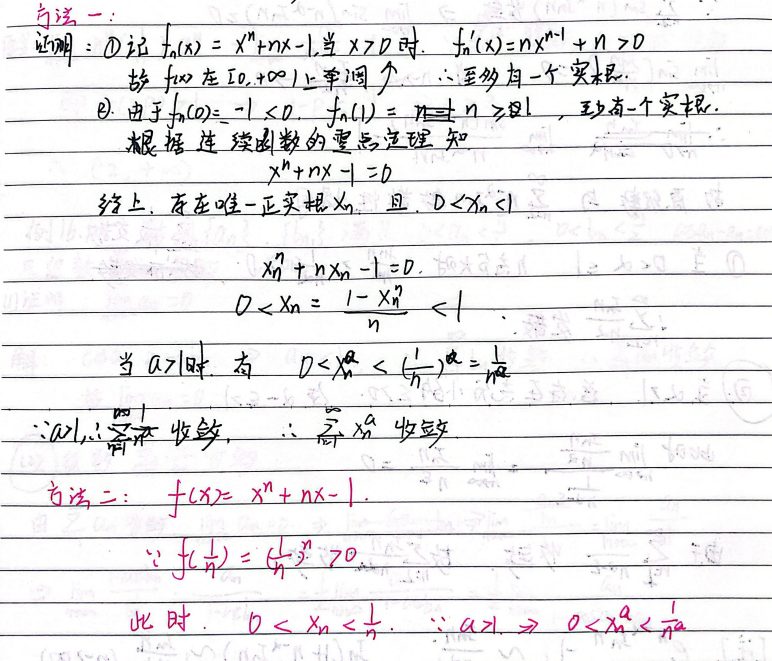 方法一:
证明: ① 记 fₙ(x) = xⁿ+nx-1, 当 x>0 时. fₙ'(x)=nxⁿ⁻¹ + n >0
故 f(x) 在 [0,+∞) 上单调↑ ∴ 至多有一个实根.
②. 由于 fₙ(0)=-1 <0. fₙ(1) = n ≥1, 至少有一个实根.
根据连续函数的零点定理知
xⁿ+nx-1=0
综上. 存在唯一正实根 xₙ 且. 0<xₙ<1
xₙⁿ + nxₙ -1 =0.
0 < xₙ = (1-xₙⁿ)/n < 1
当 a>1时. 有 0<xₙᵃ < (1/n)ᵃ = 1/nᵃ
∵a>1, ∴ ∑_{n=1}^{∞} 1/nᵃ 收敛. ∴ ∑_{n=1}^{∞} xₙᵃ 收敛.
方法二: f(x)= xⁿ + nx-1.
∵ f(1/n) = (1/n)ⁿ >0
此时. 0 < xₙ < 1/n. ∵ a>1. ⇒ 0<xₙᵃ < 1/nᵃ